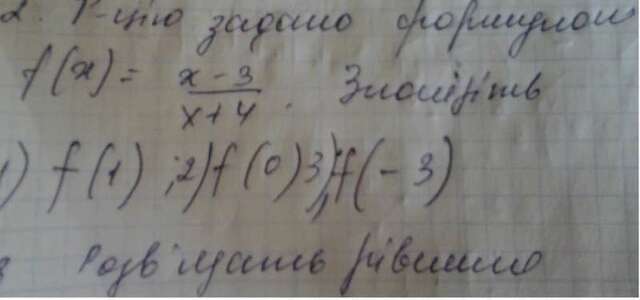 2. Ф-цію задано формулою
f(x) = x - 3 / x + 4 . Знайдіть
1) f(1) ; 2) f(0) 3) f(- 3)
Розв'яжіть рівняння